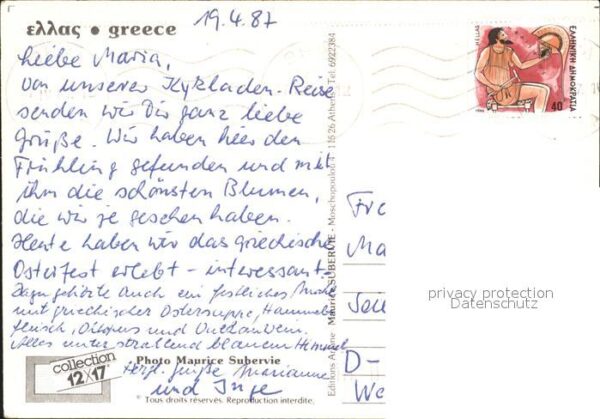 ελλας • greece
19.4.87
Liebe Maria,
von unserer Kykladen-Reise
senden wir Dir ganz liebe
Grüße. Wir haben hier den
Frühling gefunden und mit
ihm die schönsten Blumen,
die wir je gesehen haben.
Heute haben wir das griechische
Osterfest erlebt - interessant.
Dazu gehörte auch ein festliches
mit griechischer Ostersuppe, Hammel-
fleisch, Oktopus und
Alles unter strahlend blauem Himmel
Herzl. Grüße Marianne
und Inge
Photo Maurice Subervie
collection
12x17
* Tous droits réservés. Reproduction interdite.
Editions Ariane - Maurice SUBERVIE - Moschopoulou 4 - 11526 Athens - Tel. 6922384
ΕΛΛΗΝΙΚΗ ΔΗΜΟΚΡΑΤΙΑ
HELLAS
40
Fr
Ma
D-
We
privacy protection
Datenschutz